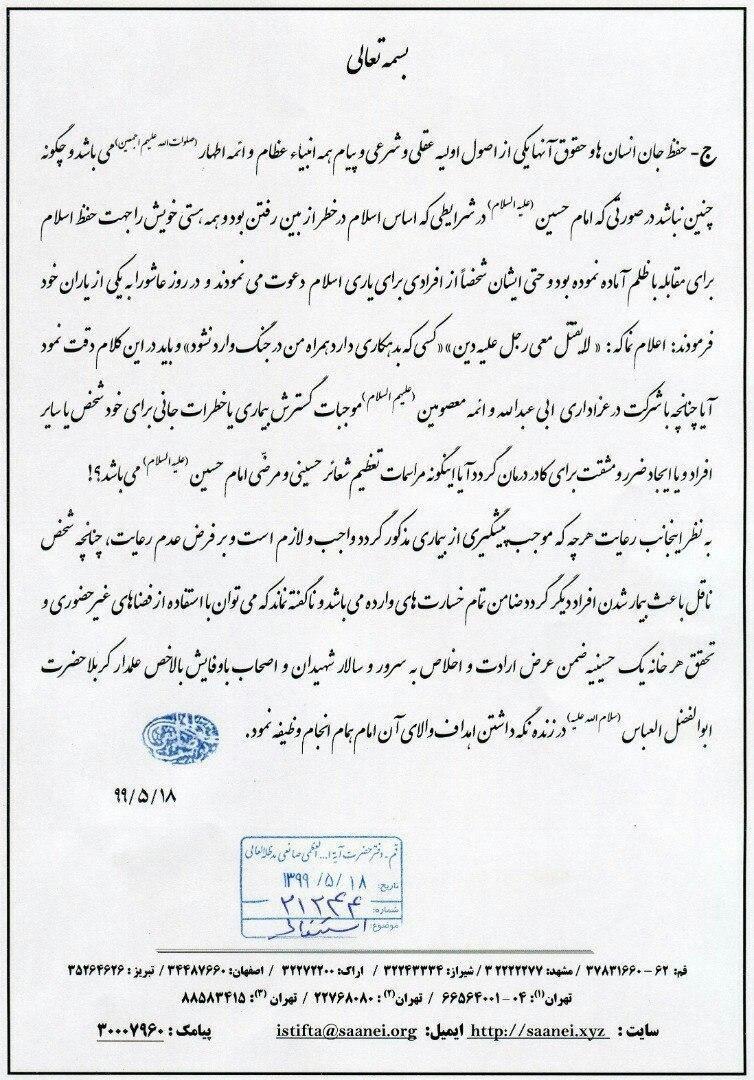 بسمه تعالی
ج- حفظ جان انسان ها و حقوق آنها یکی از اصول اولیه عقلی و شرعی و پیام همه انبیاء عظام و ائمه اطهار (صلوات الله علیهم اجمعین) می باشد و چگونه
چنین نباشد در صورتی که امام حسین (علیه السلام) در شرایطی که اساس اسلام در خطر از بین رفتن بود و همه هستی خویش را جهت حفظ اسلام
برای مقابله با ظلم آماده نموده بود و حتی ایشان شخصاً از افرادی برای یاری اسلام دعوت می نمودند و در روز عاشورا به یکی از یاران خود
فرمودند: اعلام نما که: « لا یقتل معی رجل علیه دین» «کسی که بدهکاری دارد همراه من در جنگ وارد نشود» و باید در این کلام دقت نمود
آیا چنانچه با شرکت در عزاداری ابی عبدالله و ائمه معصومین (علیهم السلام) موجبات گسترش بیماری یا خطرات جانی برای خود شخص یا سایر
افراد و یا ایجاد ضرر و مشقت برای کادر درمان گردد آیا اینگونه مراسمات تعظیم شعائر حسینی و مرضّی امام حسین (علیه السلام) می باشد؟!
به نظر اینجانب رعایت هرچه که موجب پیشگیری از بیماری مذکور گردد واجب و لازم است و بر فرض عدم رعایت، چنانچه شخص
ناقل باعث بیمار شدن افراد دیگر گردد ضامن تمام خسارت های وارده می باشد و ناگفته نماند که می توان با استفاده از فضاهای غیرحضوری و
تحقق هر خانه یک حسینیه ضمن عرض ارادت و اخلاص به سرور و سالار شهیدان و اصحاب باوفایش بالاخص علمدار کربلا حضرت
ابوالفضل العباس (سلام الله علیه) در زنده نگه داشتن اهداف والای آن امام همام انجام وظیفه نمود.
۹۹/۵/۱۸
قم - دفتر حضرت آیة ا... العظمی صانعی مدظله العالی
تاریخ: ۱۳۹۹/۵/۱۸
شماره: ۲۱۲۴۴
موضوع: استفتاء
قم: ۶۲-۳۷۸۳۱۶۶۰ / مشهد: ۳۲۲۲۲۲۷۷ / شیراز: ۳۲۲۴۳۳۳۴ / اراک: ۳۲۲۷۲۲۰۰ / اصفهان: ۳۴۴۸۷۶۶۰ / تبریز: ۳۵۲۶۴۶۲۶
تهران(۱): ۰۴-۶۶۵۶۴۰۰۱ / تهران(۲): ۲۲۷۶۸۰۸۰ / تهران (۳): ۸۸۵۸۳۴۱۵
سایت : http://saanei.xyz ایمیل: istifta@saanei.org پیامک : ۳۰۰۰۷۹۶۰